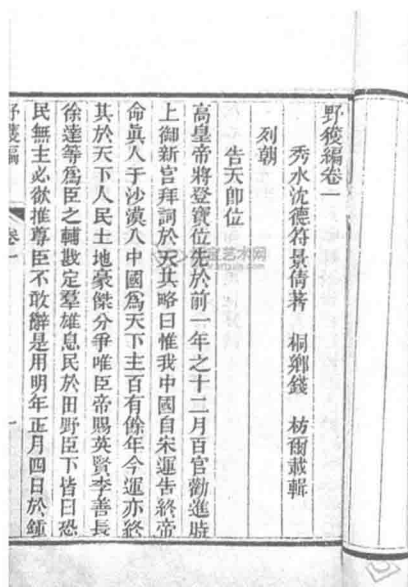 野獲編卷一
秀水沈德符景倩著　桐鄉錢　枋爾載輯
列朝
告天即位
高皇帝將登寶位先於前一年之十二月百官勸進時
上御新宮拜詞於天其略曰惟我中國自宋運告終帝
命眞人于沙漠入中國爲天下主百有餘年今運亦終
其於天下人民土地豪傑分爭唯臣帝賜英賢李善長
徐達等爲臣之輔戡定羣雄息民於田野臣下皆曰恐
民無主必欲推尊臣不敢辭是用明年正月四日於鍾
野獲編　卷一　一